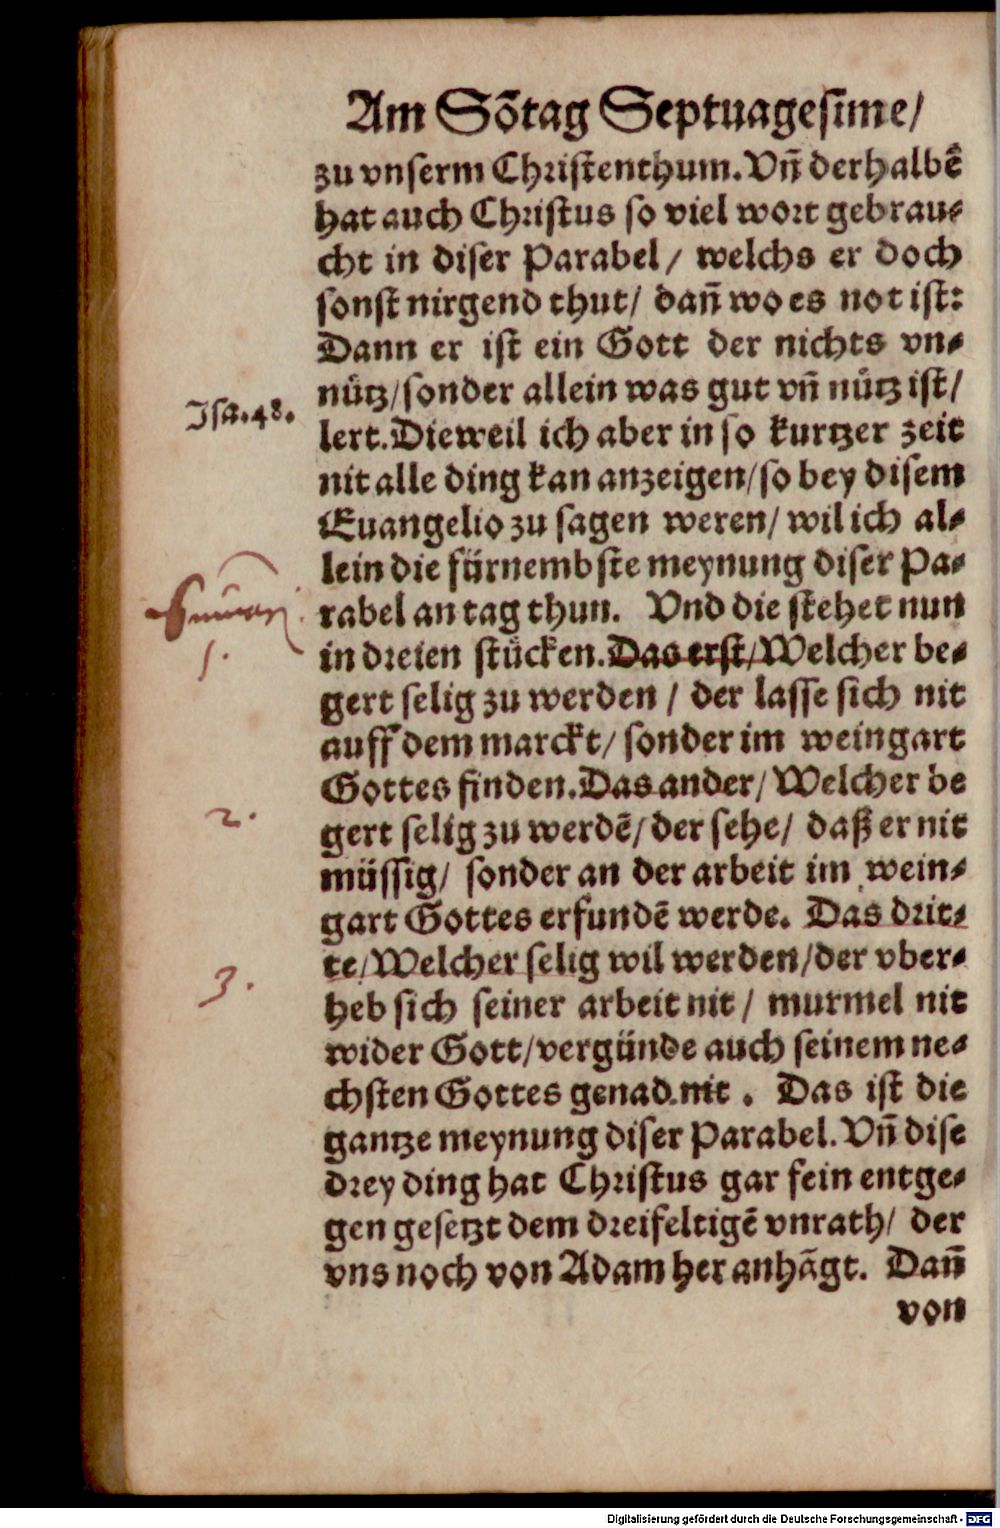 Am Sõtag Septuagesime/
zu vnserm Christenthum. Vñ derhalbẽ
hat auch Christus so viel wort gebrau-
cht in diser Parabel/ welchs er doch
sonst nirgend thut/ dañ wo es not ist:
Dann er ist ein Gott der nichts vn-
nütz/sonder allein was gut vñ nütz ist/
Isa. 48.
lert. Dieweil ich aber in so kurtzer zeit
nit alle ding kan anzeigen/so bey disem
Euangelio zu sagen weren/ wil ich al-
lein die fürnembste meynung diser Pa-
rabel an tag thun. Vnd die stehet nun
in dreien stücken. Das erst/Welcher be-
1.
gert selig zu werden / der lasse sich nit
auff dem marckt/ sonder im weingart
Gottes finden. Das ander/ Welcher be
2.
gert selig zu werdẽ/ der sehe/ daß er nit
müssig/ sonder an der arbeit im wein-
gart Gottes erfundẽ werde. Das drit-
te/Welcher selig wil werden/der vber-
3.
heb sich seiner arbeit nit / murmel nit
wider Gott/vergünde auch seinem ne-
chsten Gottes genad nit . Das ist die
gantze meynung diser Parabel. Vñ dise
drey ding hat Christus gar fein entge-
gen gesetzt dem dreifeltigẽ vnrath/ der
vns noch von Adam her anhãgt. Dañ
von
Digitalisierung gefördert durch die Deutsche Forschungsgemeinschaft - DFG